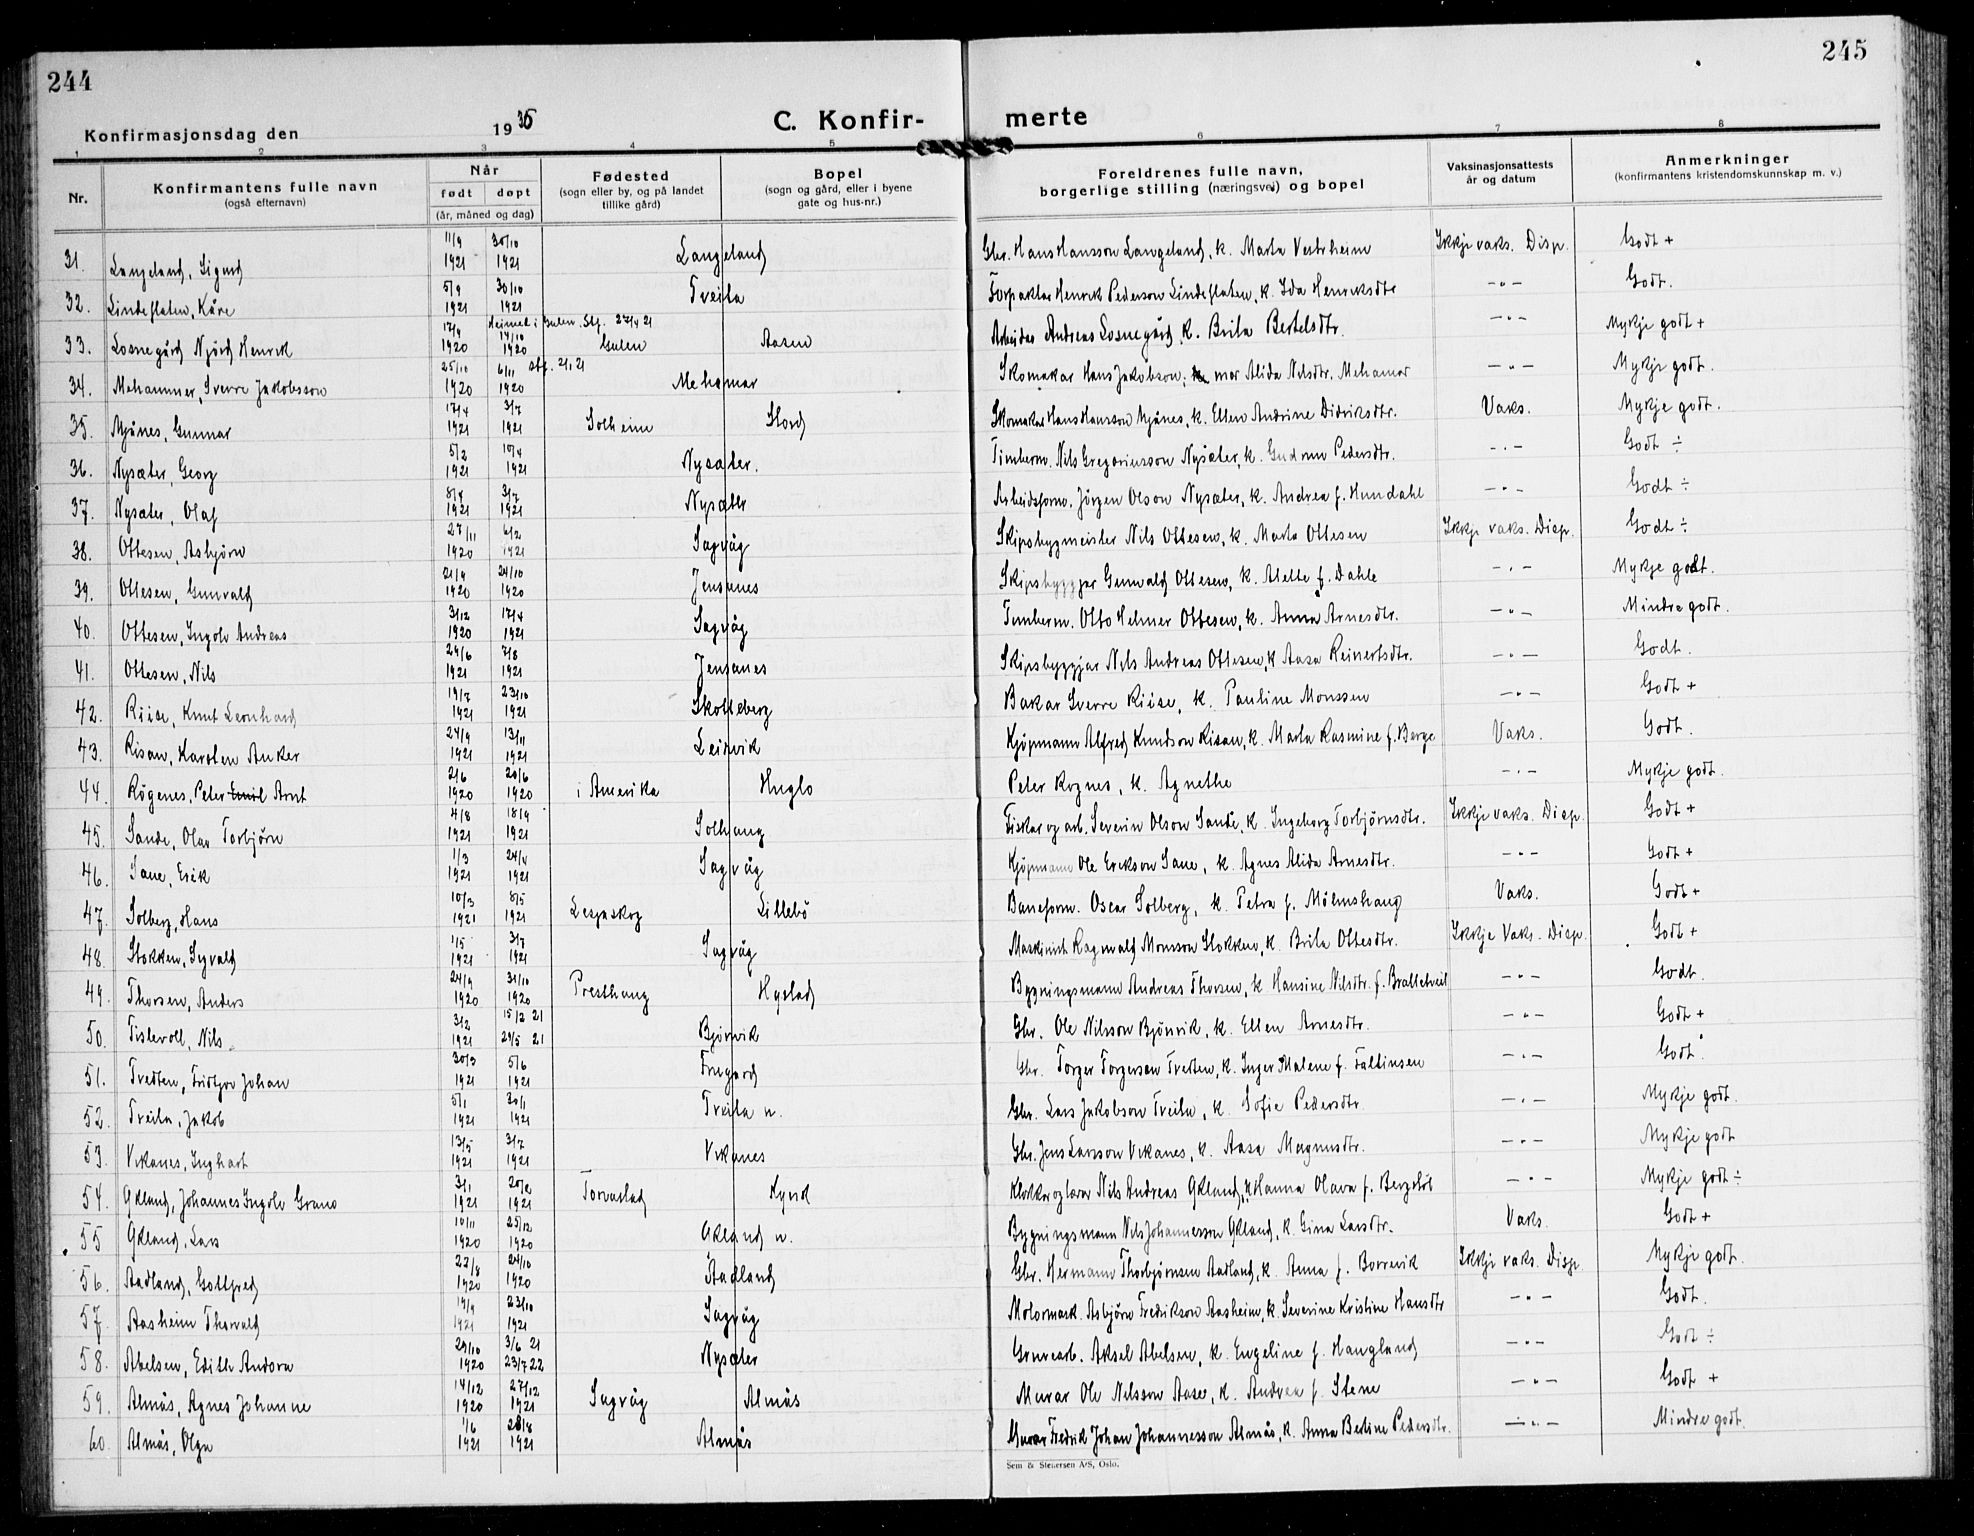 244
245
Konfirmasjonsdag den 1935
C. Konfir- merte
1 2 3 4 5 6 7 8
Nr. Konfirmantens fulle navn (også efternavn) Når født døpt (år, måned og dag) Fødested (sogn eller by, og på landet tillike gård) Bopel (sogn og gård, eller i byene gate og hus-nr.) Foreldrenes fulle navn, borgerlige stilling (næringsvei) og bopel Vaksinasjonsattests år og datum Anmerkninger (konfirmantens kristendomskunnskap m. v.)
31. Langeland, Sigurd 11/9 1921 30/10 1921 Langeland Gbr. Hans Hansson Langeland, k. Marta Vestrheim Ikkje vaks. Disp. Godt +
32. Lindeflaten, Kåre 5/9 1921 30/10 1921 Tveita Forpaktar Henrik Pederson Lindeflaten, k. Ida Henriksdtr — " — Godt.
33. Losnegård Njård Henrik 17/9 1920 heimed. i Gulen. Stf. 27/4 21 14/10 1920 Gulen Aasen Arbeidar Andreas Losnegård, k. Brita Bertelsdtr. — " — Mykje godt +
34. Mehammer, Sverre Jakobsson 25/10 1920 6/11 1920 Stf. 21/21 Mehamar Skomakar Hans Jakobson, mor Alida Nilsdtr. Mehamar — " — Mykje godt.
35. Mjånes, Gunnar 17/4 1921 3/7 1921 Solheim Stord Skomakar Hans Hansson Mjånes, k. Ellen Andrine Didriksdtr. Vaks. Mykje godt.
36. Nysæter, Georg 5/2 1921 10/4 1921 Nysæter. Timberm. Nils Gregoriusson Nysæter, k. Gudrun Pedersdtr. — " — Godt ÷
37. Nysæter, Olaf 8/4 1921 3/7 1921 Nysæter Arbeidsform. Jörgen Olson Nysæter, k. Andrea f. Hundahl — " — Godt ÷
38. Ottesen, Asbjørn 27/11 1920 6/2 1921 Sagvåg Skipsbygmeister Nils Ottesen, k. Marta Ottesen Ikkje vaks. Disp. Godt ÷
39. Ottesen, Gunvald 21/9 1920 24/10 1920 Jensanes Skipsbyggjar Gunvald Ottesen, k. Alette f. Dahle — " — Mykje godt.
40. Ottesen, Ingolv Andreas 3/12 1920 17/4 1921 Sagvåg Timberm. Otto Helmer Ottesen, k. Anna Arnesdtr. — " — Mindre godt.
41. Ottesen, Nils 29/6 1921 7/8 1921 Jensanes Skipsbyggjar Nils Andreas Ottesen, k Aasa Reinertsdtr. — " — Godt.
42. Riise, Knut Leonhard 19/7 1921 23/10 1921 Skotteberg Bakar Sverre Riise, k. Pauline Monssen — " — Godt +
43. Risan, Karsten Anker 24/9 1921 13/11 1921 Leirvik Kjøpmann Alfred Knudson Risan, k. Marta Rasmine f. Berge Vaks. Godt.
44. Røgenes, Peter Emil Arnt 2/6 1920 20/6 1920 i Amerika Huglo Peter Rognes, k. Agnethe — " — Mykje godt.
45. Sande, Olav Torbjørn 4/8 1921 18/9 1921 Solhaug Fiskar og arb. Severin Olson Sande, k. Ingeborg Torbjørnsdtr. Ikkje vaks. Disp. Godt +
46. Sane, Erik 1/3 1921 24/4 1921 Sagvåg Kjøpmann Ole Erikson Sane, k. Agnes Alida Arnesdtr. — " — Godt +
47. Solberg, Hans 10/3 1921 8/5 1921 Lesjaskog Lillebö Baneform. Oscar Solberg, k. Petra f. Mölmshaug Vaks. Godt +
48. Stokken, Sigvald 1/5 1921 3/7 1921 Sagvåg Maskinist Ragnvald Monsson Stokken, k. Brita Ottesdtr. Ikkje Vaks. Disp. Godt +
49. Thorsen, Anders 24/9 1920 31/10 1920 Presthaug Hystad Bygningsmann Andreas Thorsen, k. Hansine Nilsdtr. f. Brattetveit — " — Godt.
50. Tislevoll, Nils 3/2 1921 15/2 21 29/5 21 Bjørvik Gbr. Ole Nilsson Bjönvik, k. Ellen Arnesdtr. — " — Godt +
51. Tvedten, Fridtjov Johan 30/3 1921 5/6 1921 Frugard Gbr. Torger Torgerson Tvedten, k. Inger Malene f. Faltinsen — " — Godt.
52. Tveita, Jakob 5/1 1921 30/1 1921 Tveita n. Gbr. Lars Jakobson Tveita, k. Sofie Pedersdtr. — " — Mykje godt.
53. Vikanes, Inghart 13/5 1921 3/7 1921 Vikanes Gbr. Jens Larsson Vikanes, k. Aasa Magnusdtr. — " — Mykje godt
54. Økland, Johannes Ingolv Grano 3/1 1921 20/2 1921 Torvastad Kyrk Klokkar og lærar Nils Andreas Økland, k Hanna Olava f. Bergstöl — " — Mykje godt ÷
55 Økland, Lars 10/11 1920 25/12 1920 Økland n. Bygningsmann Nils Johannesson Økland, k. Gina Larsdtr. Vaks. Godt +
56. Aadland, Gottfred 22/8 1920 24/10 1920 Aadland Gbr. Hermann Thorbjørnsen Aadland, k. Anna f. Borrevik Ikkje vaks. Disp. Mykje godt.
57. Aasheim Thorvald 14/9 1921 23/10 1921 Sagvåg Motormask. Asbjörn Fredrikson Aasheim, k. Severine Kristine Hansdtr — " — Godt.
58. Abelsen, Edith Andora 29/10 1920 3/6 21 23/7 22 Nysæter Gruvearb. Aksel Abelsen, k. Engeline f. Haugland — " — Godt ÷
59. Almås, Agnes Johanne 14/12 1920 27/12 1921 Sagvåg Almås Murar Ole Nilsson Aase, k. Andrea f. Stene — " — Godt +
60. Almås, Olga 1/6 1921 28/8 1921 Almås Murar Fredrik Johan Johannesson Almås, k. Anna Bertine Pedersdtr. — " — Mindre godt.
Sem & Stenersen A/S, Oslo.